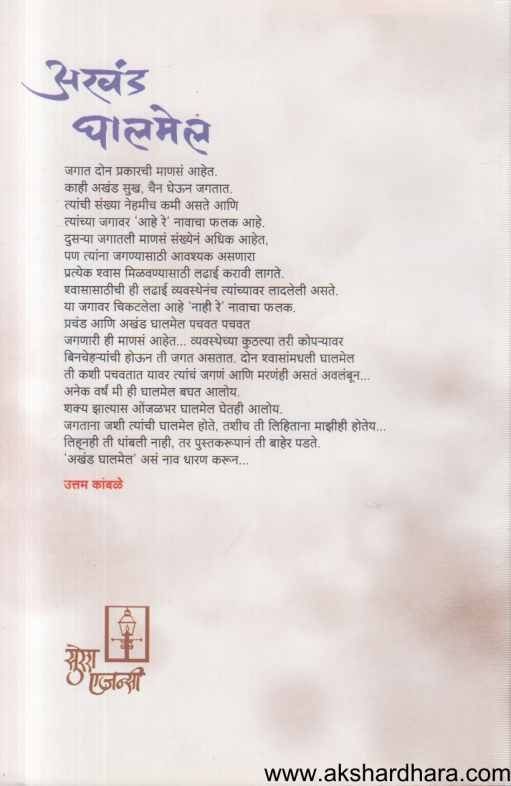 अखंड
घालमेल
जगात दोन प्रकारची माणसं आहेत.
काही अखंड सुख, चैन घेऊन जगतात.
त्यांची संख्या नेहमीच कमी असते आणि
त्यांच्या जगावर 'आहे रे' नावाचा फलक आहे.
दुसऱ्या जगातली माणसं संख्येनं अधिक आहेत,
पण त्यांना जगण्यासाठी आवश्यक असणारा
प्रत्येक श्वास मिळवण्यासाठी लढाई करावी लागते.
श्वासासाठीची ही लढाई व्यवस्थेनंच त्यांच्यावर लादलेली असते.
या जगावर चिकटलेला आहे 'नाही रे' नावाचा फलक.
प्रचंड आणि अखंड घालमेल पचवत पचवत
जगणारी ही माणसं आहेत... व्यवस्थेच्या कुठल्या तरी कोपऱ्यावर
बिनचेहऱ्यांची होऊन ती जगत असतात. दोन श्वासांमधली घालमेल
ती कशी पचवतात यावर त्यांचं जगणं आणि मरणंही असतं अवलंबून...
अनेक वर्षं मी ही घालमेल बघत आलोय.
शक्य झाल्यास ओंजळभर घालमेल घेतही आलोय.
जगताना जशी त्यांची घालमेल होते, तशीच ती लिहिताना माझीही होतेय...
लिहूनही ती थांबली नाही, तर पुस्तकरूपानं ती बाहेर पडते.
'अखंड घालमेल' असं नाव धारण करून...
उत्तम कांबळे
सुरेश
एजन्सी
www.akshardhara.com